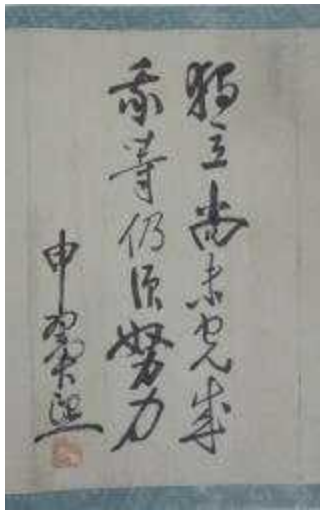 獨立尚未完成
我等仍須努力
申翼熙